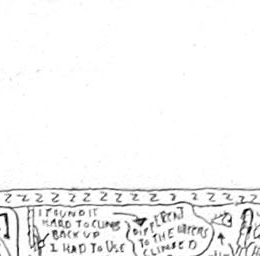 Z Z Z Z Z Z Z Z Z Z Z Z Z Z Z
I FOUND IT
HARD TO CLIMB
BACK UP
I HAD TO USE
DIFFERENT
TO THE
CLIMBED